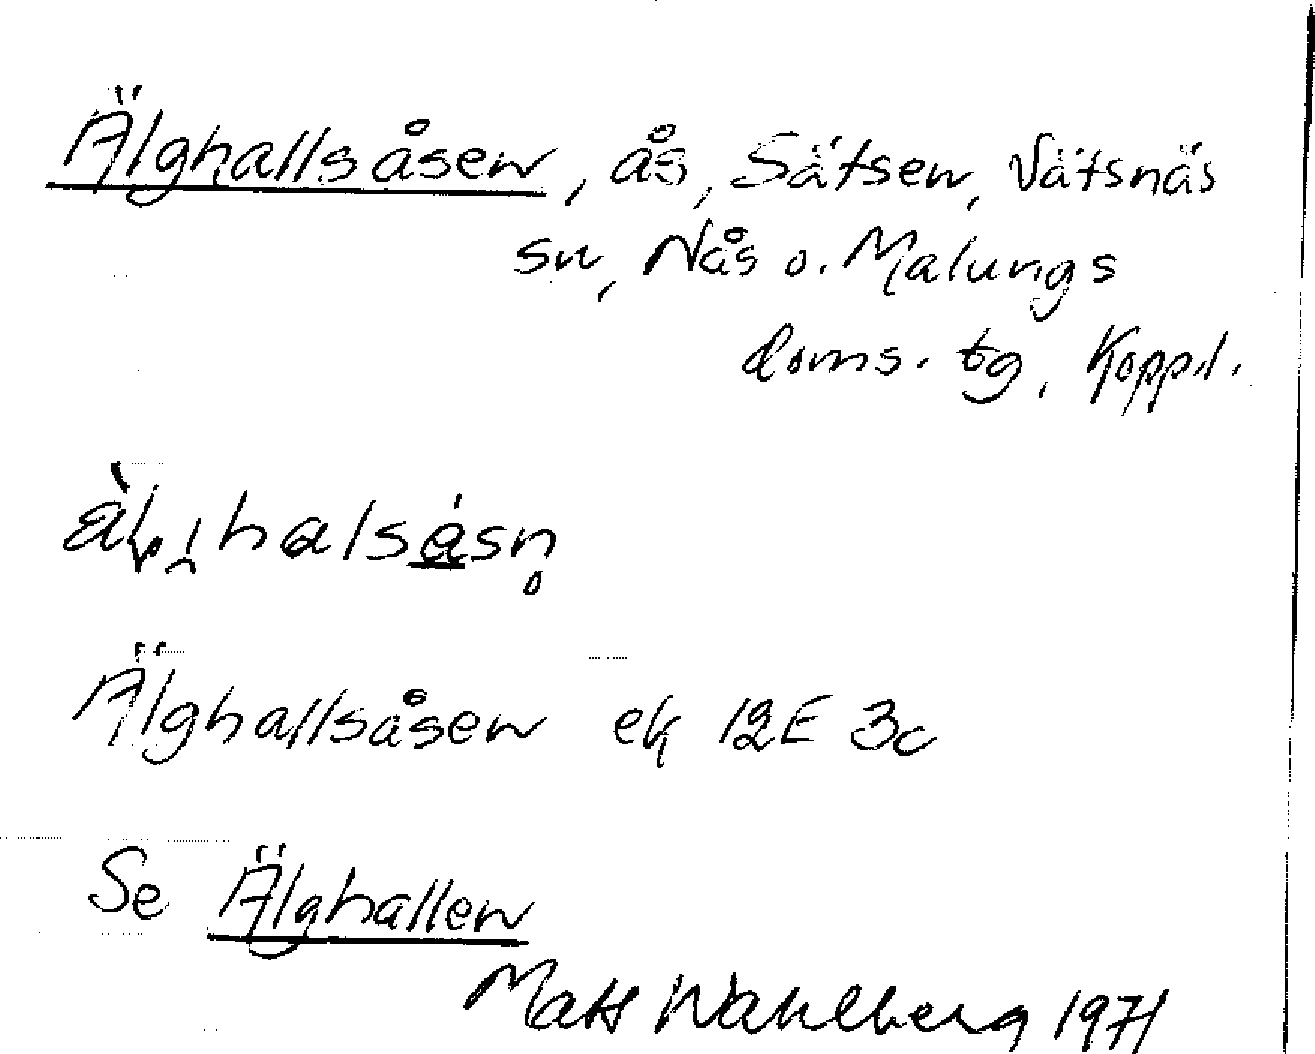 Älghallsåsen, ås, Sätsen, Vätsnäs
sn, Nås o. Malungs
doms. tg, Koppl.
halsåsn̥
Älghallsåsen ek 12E 3c
Se Älghallen
Mats Wahlberg 1971